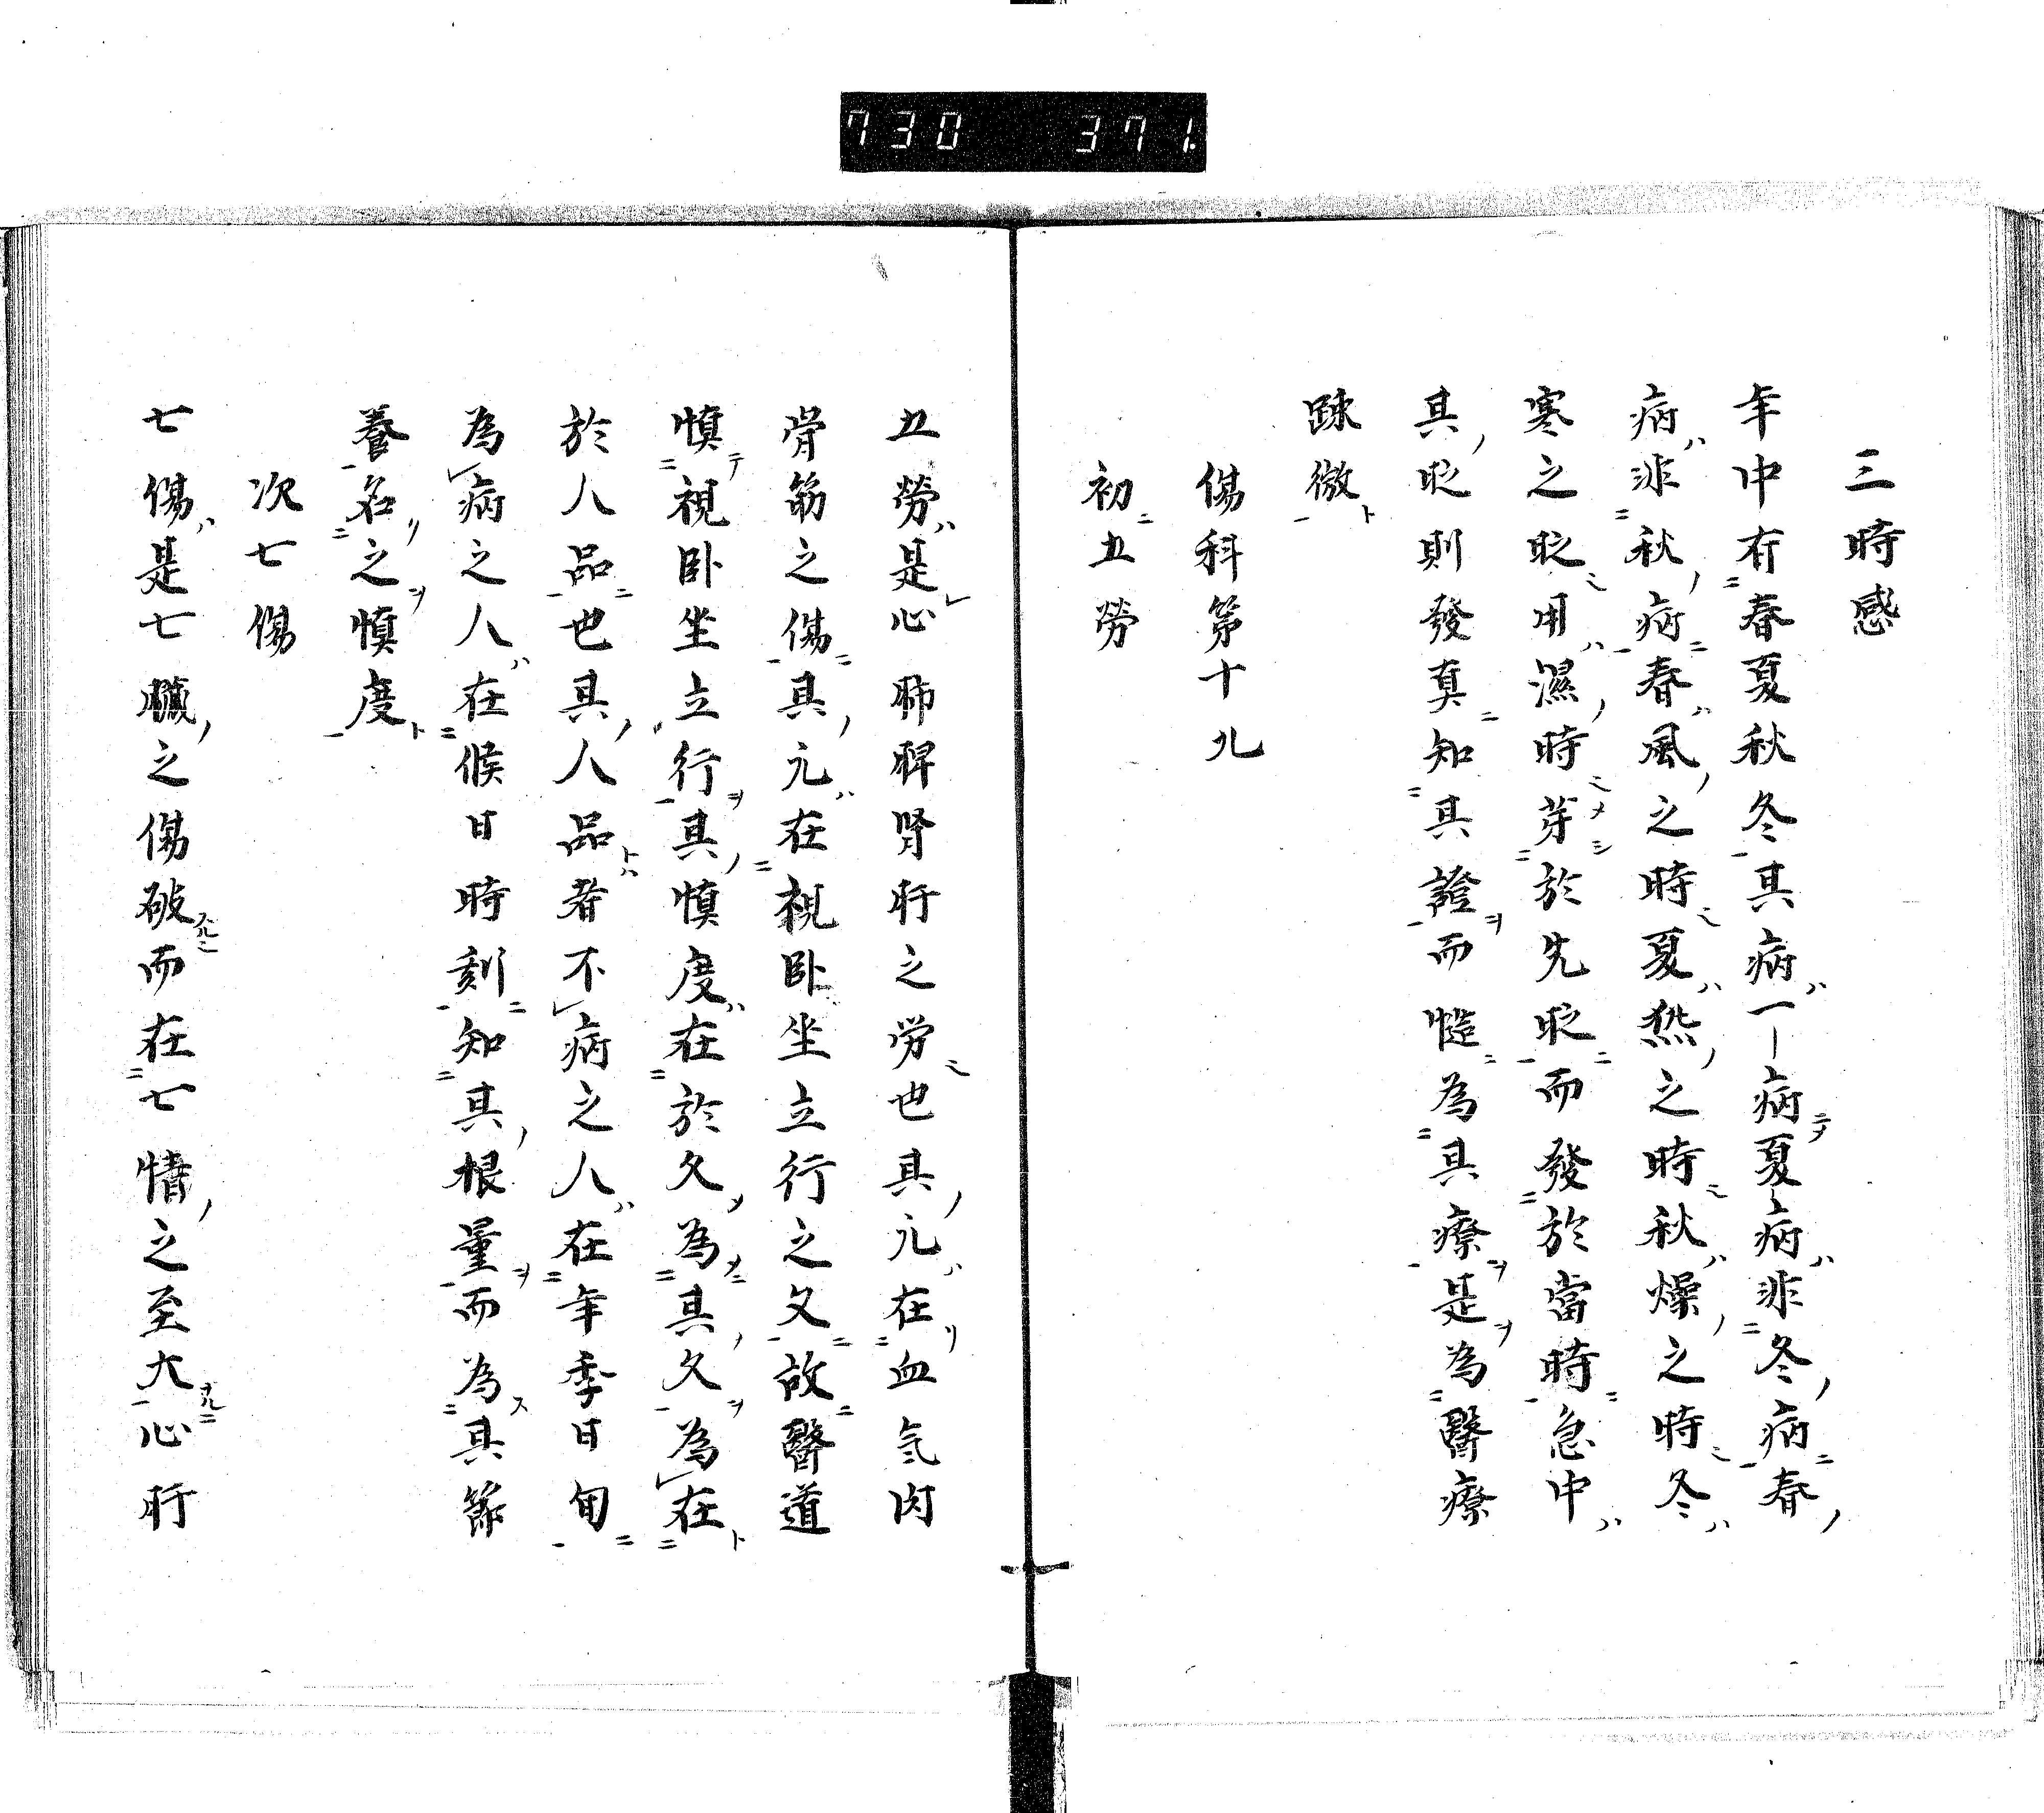 730 371.
三時感
年中有春夏秋冬其病一病夏病非冬病春
病非秋病春風之時夏熱之時秋燥之時冬
寒之眤用濕時芽於先眤而發於當時急中
其眤則發真知其證而慥為其療是為醫療
踈微
傷科第十九
初五勞
五勞是心肺脾腎肝之労也其元在血氣肉
骨筋之傷其元在視卧坐立行之久故醫道
慎視卧坐立行其慎度在於久為其久為在
於人品也其人品者不病之人在年季日旬
為病之人在候日時刻知其根量而為其節
養名之慎度
次七傷
七傷是七臓之傷破而在七情之至大心肝